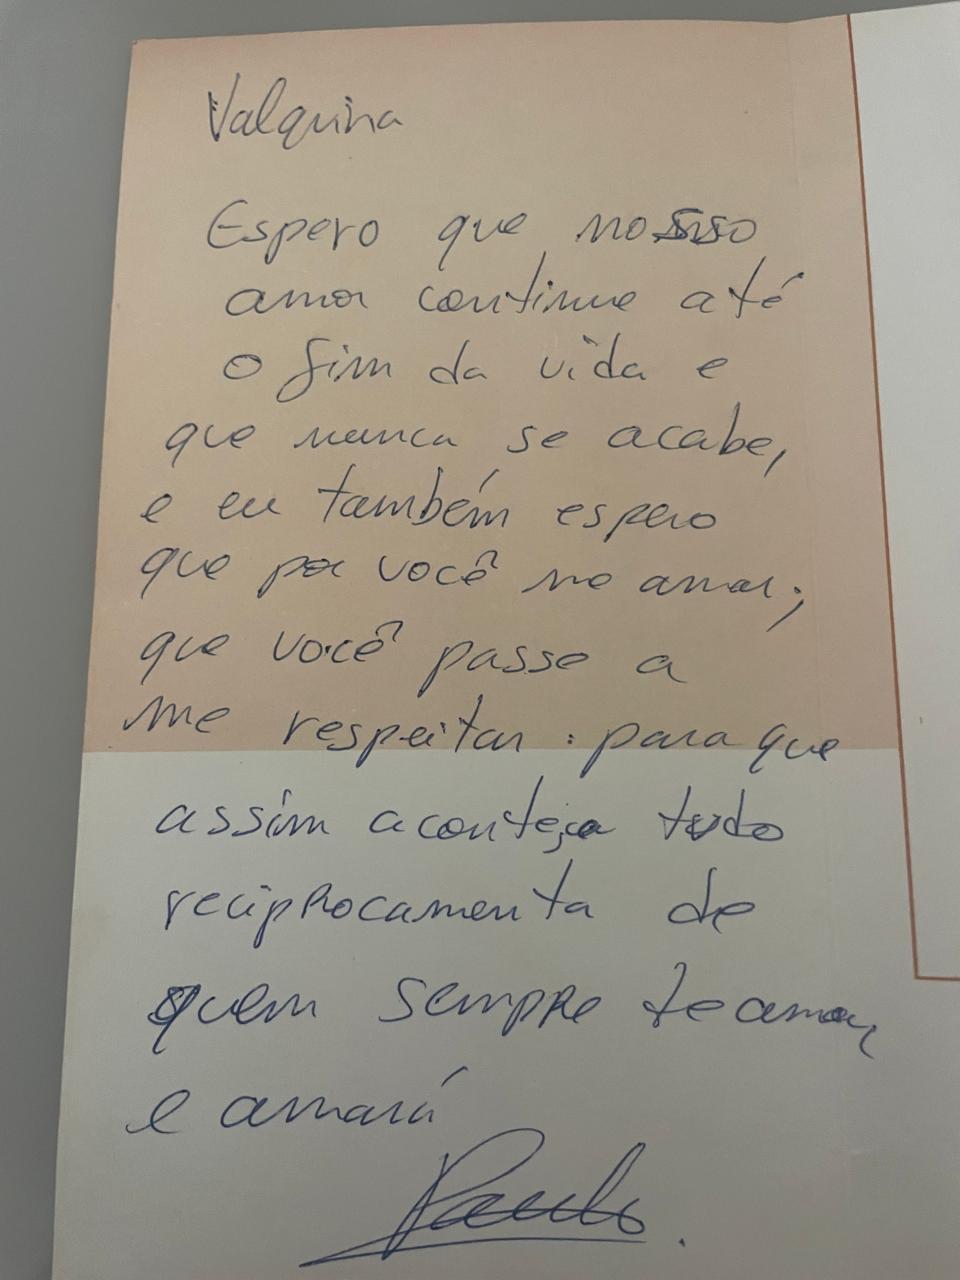 Valquiria
Espero que nosso
amor continue até
o fim da vida e
que nunca se acabe,
e eu também espero
que por você me amar;
que você passe a
me respeitar. para que
assim aconteça tudo
reciprocamenta de
quem sempre te amou,
e amará
Paulo.